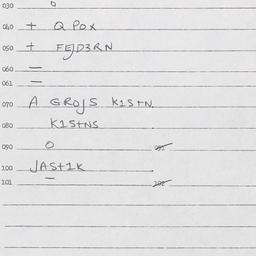 030 0
040 + Q POX
050 + FEJD3RN
060 —
061 —
070 A GROJS K1S+N
080 K1S+NS
090 0 091
100 JAS+1K
101 — 102